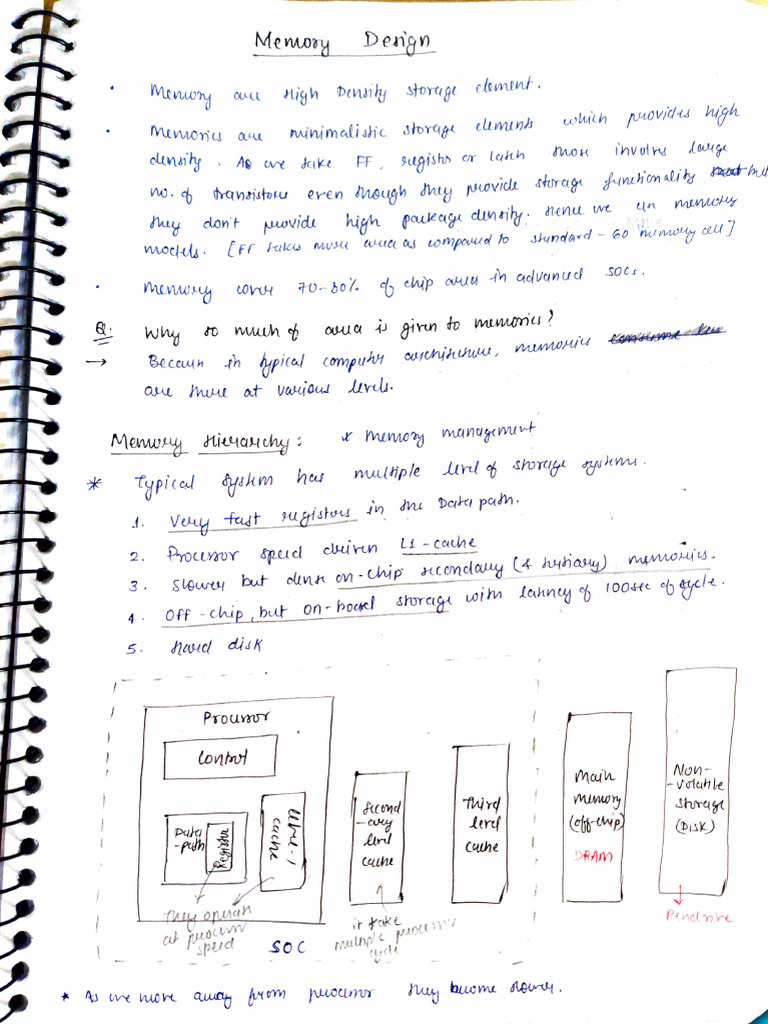 Memory Design
• Memory are High Density storage element.
• Memories are minimalistic storage elements which provides high
density. As we take FF, registor or latch those involves large
no. of transistors even though they provide storage functionality but
they don't provide high package density. Hence we use memory
models. [FF takes more area as compared to standard - 6G memory cell]
• Memory cover 70-80% of chip area in advanced SOCs.
Q. Why so much of area is given to memories?
→ Because in typical computer architecture, memories
are there at various levels.
Memory Hierarchy: * memory management
* Typical system has multiple level of storage systems.
1. Very fast registers in the Data path.
2. Processor speed driven L1-cache
3. Slower but dense on-chip secondary (& tertiary) memories.
4. Off-chip, but on-board storage with latency of 100sec of cycle.
5. Hard disk
Processor
Control
Data
-path
Register
level-1
cache
They operate
at processor
speed
SOC
Second
-ary
level
cache
it take
multiple processor
cycle
Third
level
cache
Main
memory
(off-chip)
DRAM
Non-
-volatile
storage
(DISK)
Pendrive
* As we move away from processor they become slower.